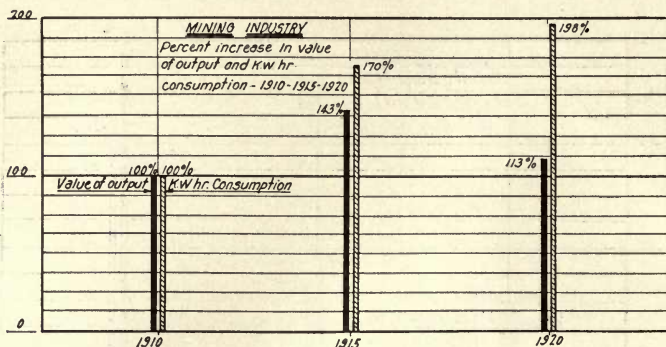 200
MINING INDUSTRY
Percent increase in value
of output and KW hr.
consumption - 1910-1915-1920
198%
170%
143%
113%
100% 100%
100
Value of output KW hr. Consumption
0
1910 1915 1920